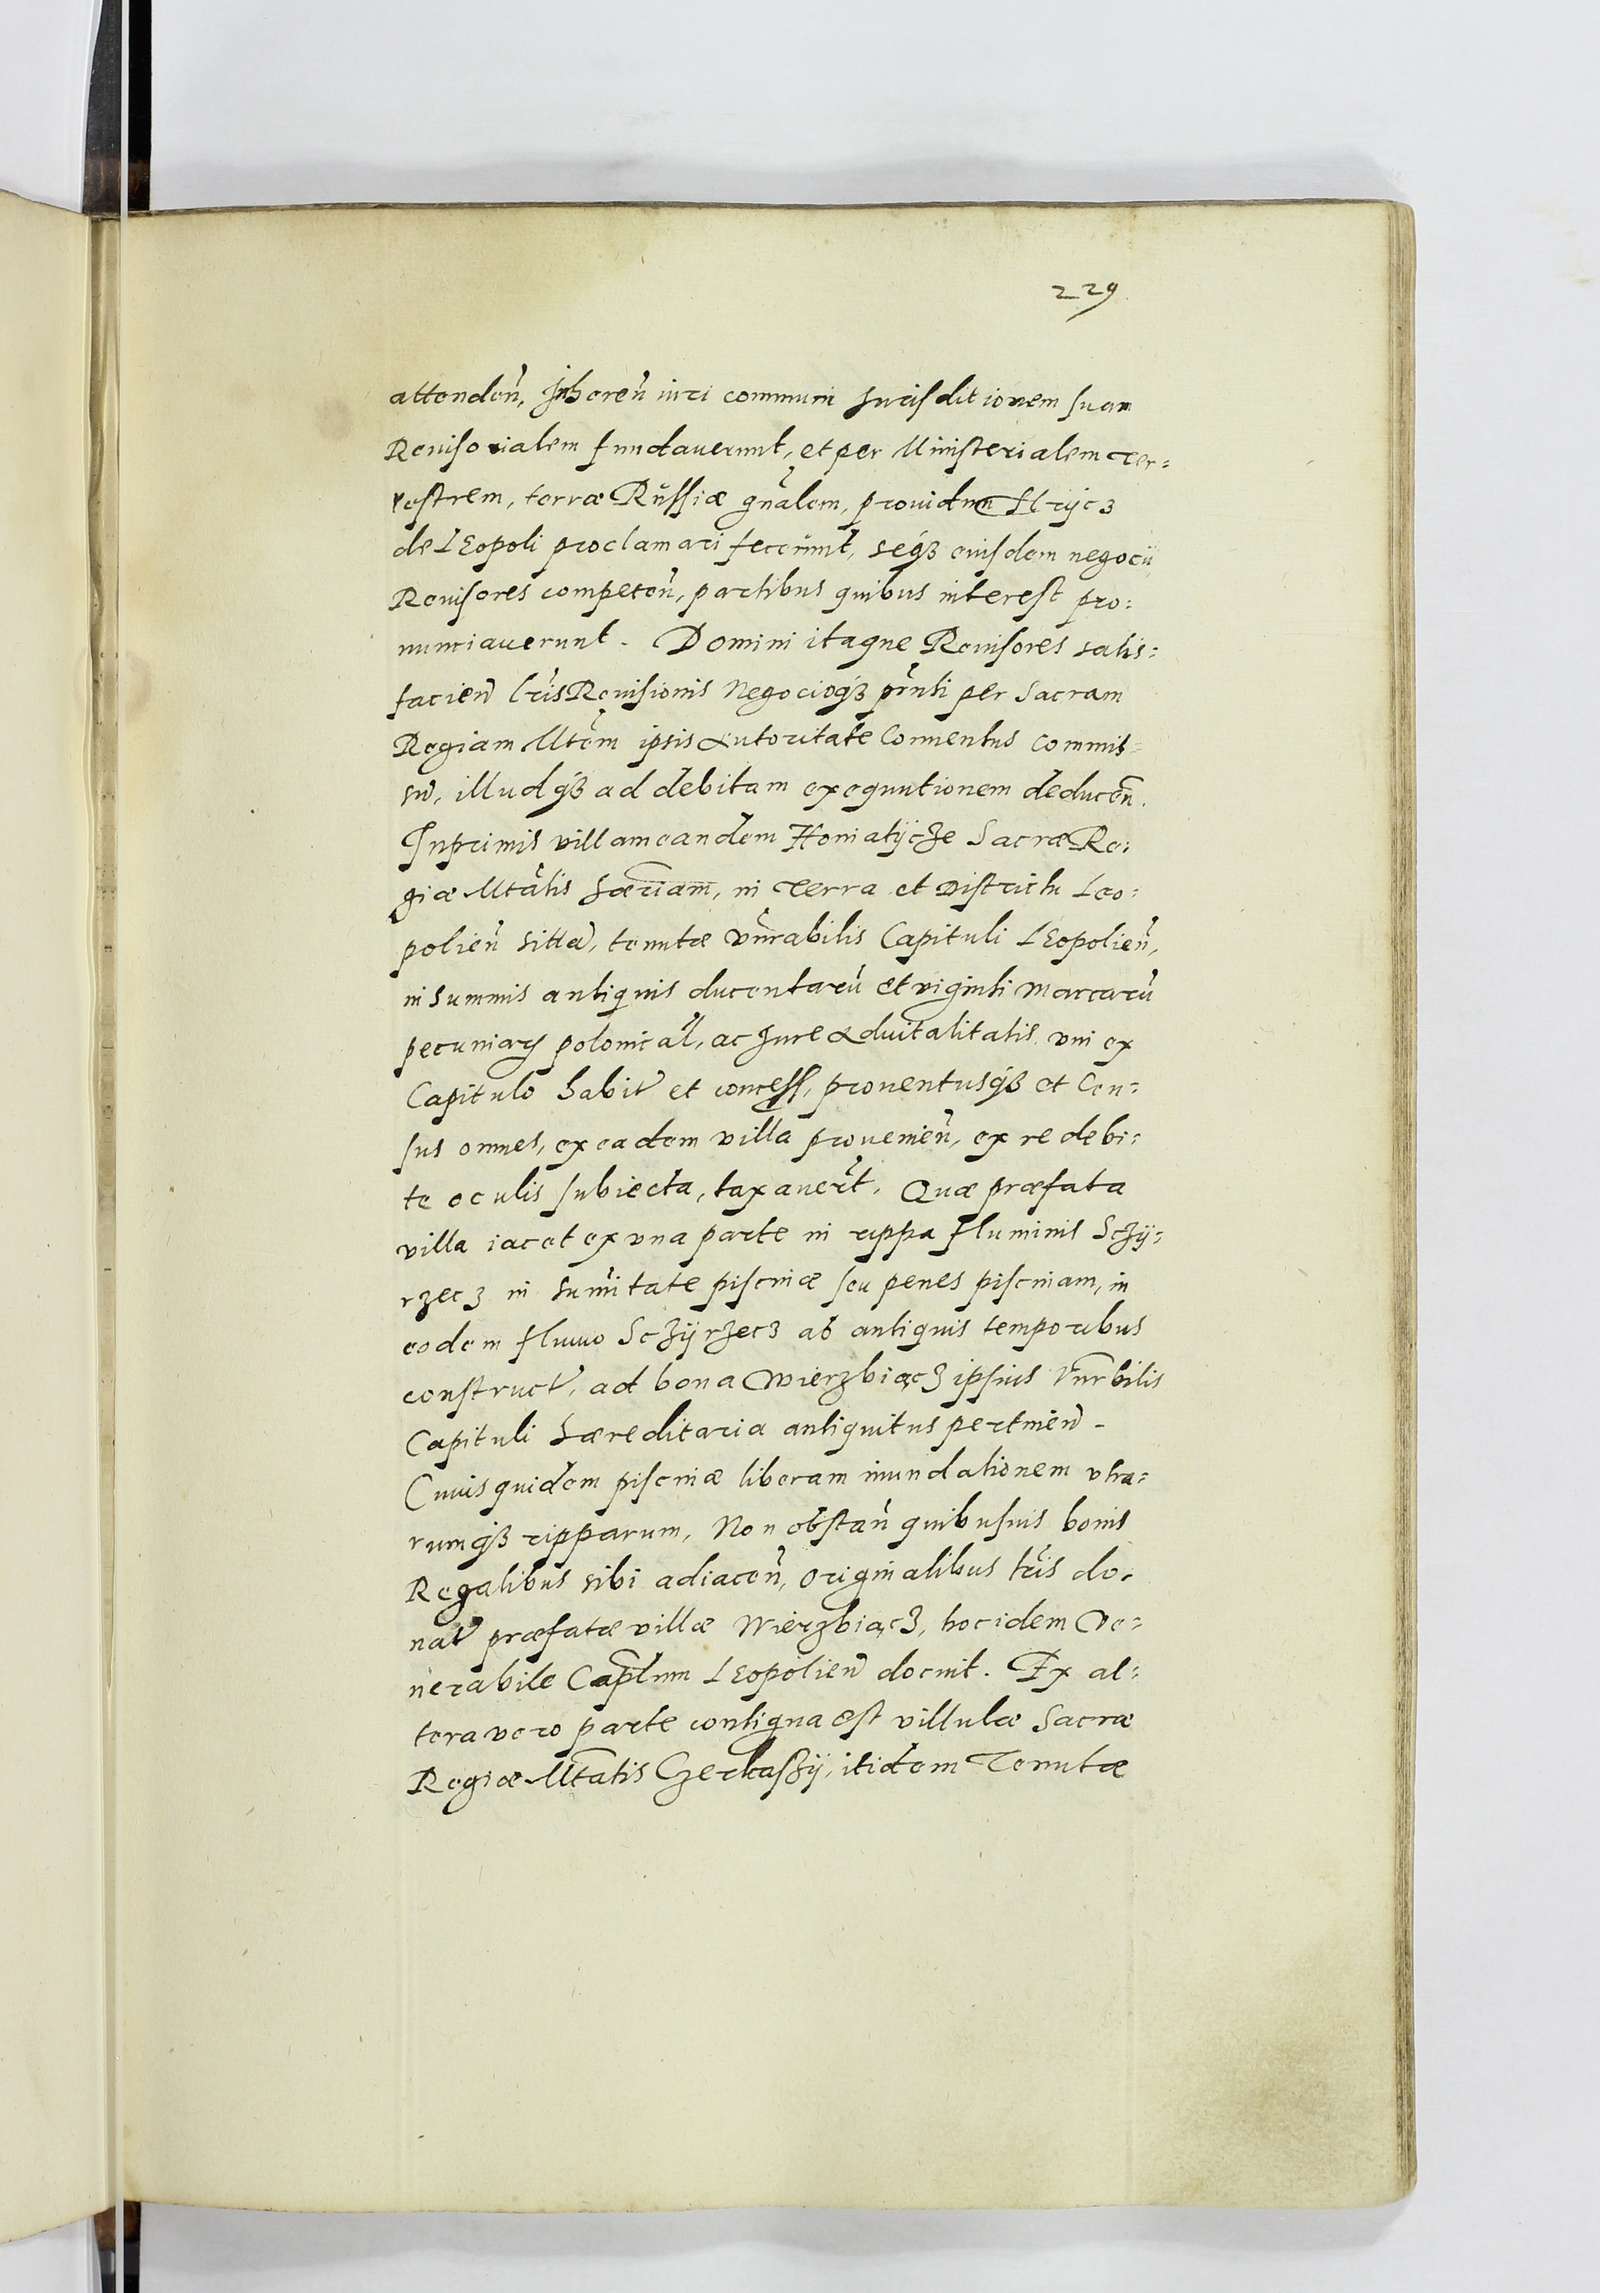 229
attendeñ, Inhereñ iuri communi Iurisditionem suam
Reuisorialem fundauerunt, et per Ministerialem Ter=
restrem, terræ Russiæ gñalem, prouidum Hrijcz
de LEopoli proclamari fecerunt, seq3 eiusdem negocii
Reuisores competeñ, partibus quibus interest pro:
nunciauerunt. Domini itaque Reuisores satis:
facieñ lr̃is Reuisionis Negocioq3 pr̃nti per Sacram
Regiam Mtẽm ipsis Autoritate Conuentus commis=
sũ, illudq3 ad debitam exequutionem deduceñ.
Inprimis villam eandem Honiatijcze Sacræ Re:
giæ Mtãtis hæriam, in Terra et Districtu Leo:
polieñ sittã, tenutæ vñrabilis Capituli LEopolieñ,
in summis antiquis ducentarũ et viginti Marcarũ
pecuniarꝝ polonical, ac Iure Aduitalitatis vni ex
Capitulo habit̃ et concess, prouentusq3 et Cen=
sus omnes, ex eadem villa prouenieñ, ex re debi:
te oculis subiecta, taxauer̃t. Quæ præfata
villa iacet ex vna parte in rippa fluminis Sczij=
rzecz in sum̃itate piscinæ seu penes piscinam, in
eodem fluuio Sczijrzecz ab antiquis temporibus
construct̃, ad bona Wierzbiącz ipsius Vñrbilis
Capituli hæreditaria antiquitus pertineñ.
Cuius quidem piscinæ liberam inundationem vtra=
rumq3 ripparum, Non obstañ quibusuis bonis
Regalibus sibi adiaceñ, originalibus lr̃is do.
nat̃ præfatæ villæ Wierzbiącz, hoc idem Ve=
nerabile Cap̃lum LEopolieñ docuit. Ex al=
tera vero parte contigua est villulæ Sacræ
Regiæ Mtãtis Czerkaszij, itidem Tenutæ